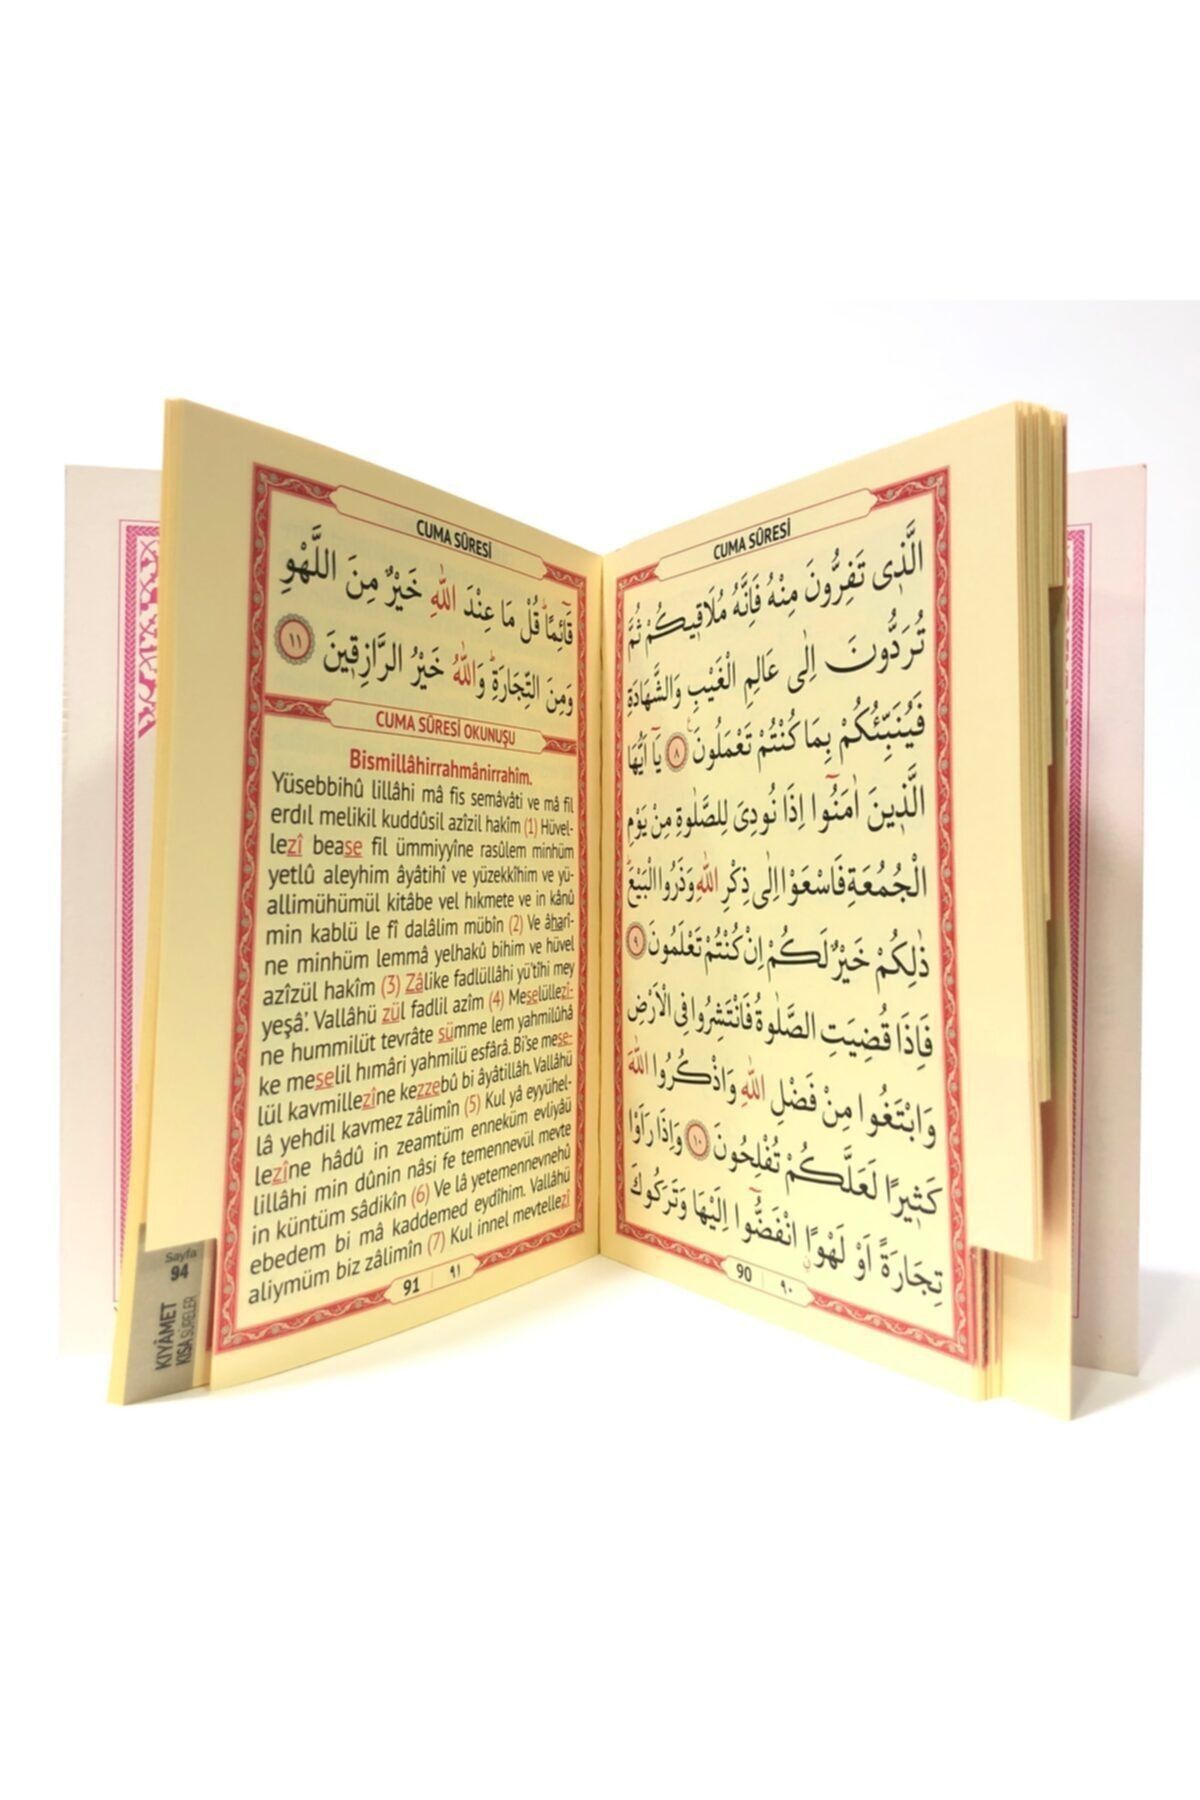 CUMA SÛRESİ
الَّذ۪ى تَفِرُّونَ مِنْهُ فَاِنَّهُ مُلَاق۪يكُمْ ثُمَّ
تُرَدُّونَ اِلٰى عَالِمِ الْغَيْبِ وَالشَّهَادَةِ
فَيُنَبِّئُكُمْ بِمَا كُنْتُمْ تَعْمَلُونَ ٨ يَٓا اَيُّهَا
الَّذ۪ينَ اٰمَنُٓوا اِذَا نُودِىَ لِلصَّلٰوةِ مِنْ يَوْمِ
الْجُمُعَةِ فَاسْعَوْا اِلٰى ذِكْرِ اللّٰهِ وَذَرُوا الْبَيْعَ
ذٰلِكُمْ خَيْرٌ لَكُمْ اِنْ كُنْتُمْ تَعْلَمُونَ ٩
فَاِذَا قُضِيَتِ الصَّلٰوةُ فَانْتَشِرُوا فِى الْاَرْضِ
وَابْتَغُوا مِنْ فَضْلِ اللّٰهِ وَاذْكُرُوا اللّٰهَ
كَث۪يرًا لَعَلَّكُمْ تُفْلِحُونَ ١٠ وَاِذَا رَاَوْا
تِجَارَةً اَوْ لَهْوًا انْفَضُّٓوا اِلَيْهَا وَتَرَكُوكَ
90 ٩٠
CUMA SÛRESİ
قَٓائِمًا قُلْ مَا عِنْدَ اللّٰهِ خَيْرٌ مِنَ اللَّهْوِ
وَمِنَ التِّجَارَةِ وَاللّٰهُ خَيْرُ الرَّازِق۪ينَ ١١
CUMA SÛRESİ OKUNUŞU
Bismillâhirrahmânirrahîm.
Yüsebbihû lillâhi mâ fis semâvâti ve mâ fil
erdıl melikil kuddûsil azîzil hakîm (1) Hüvel-
lezî bease fil ümmiyyîne rasûlem minhüm
yetlû aleyhim âyâtihî ve yüzekkîhim ve yü-
allimühümül kitâbe vel hıkmete ve in kânû
min kablü le fî dalâlim mübîn (2) Ve âharî-
ne minhüm lemmâ yelhakû bihim ve hüvel
azîzül hakîm (3) Zâlike fadlüllâhi yü'tîhi mey
yeşâ'. Vallâhü zül fadlil azîm (4) Meselüllezî-
ne hummilüt tevrâte sümme lem yahmilûhâ
ke meselil hımâri yahmilü esfârâ. Bi'se mese-
lül kavmillezîne kezzebû bi âyâtillâh. Vallâhü
lâ yehdil kavmez zâlimîn (5) Kul yâ eyyühel-
lezîne hâdû in zeamtüm enneküm evliyâü
lillâhi min dûnin nâsi fe temennevül mevte
in küntüm sâdikîn (6) Ve lâ yetemennevnehû
ebedem bi mâ kaddemed eydîhim. Vallâhü
aliymüm biz zâlimîn (7) Kul innel mevtellezî
91 ٩١
Sayfa
94
KIYÂMET
KISA SÛRELER